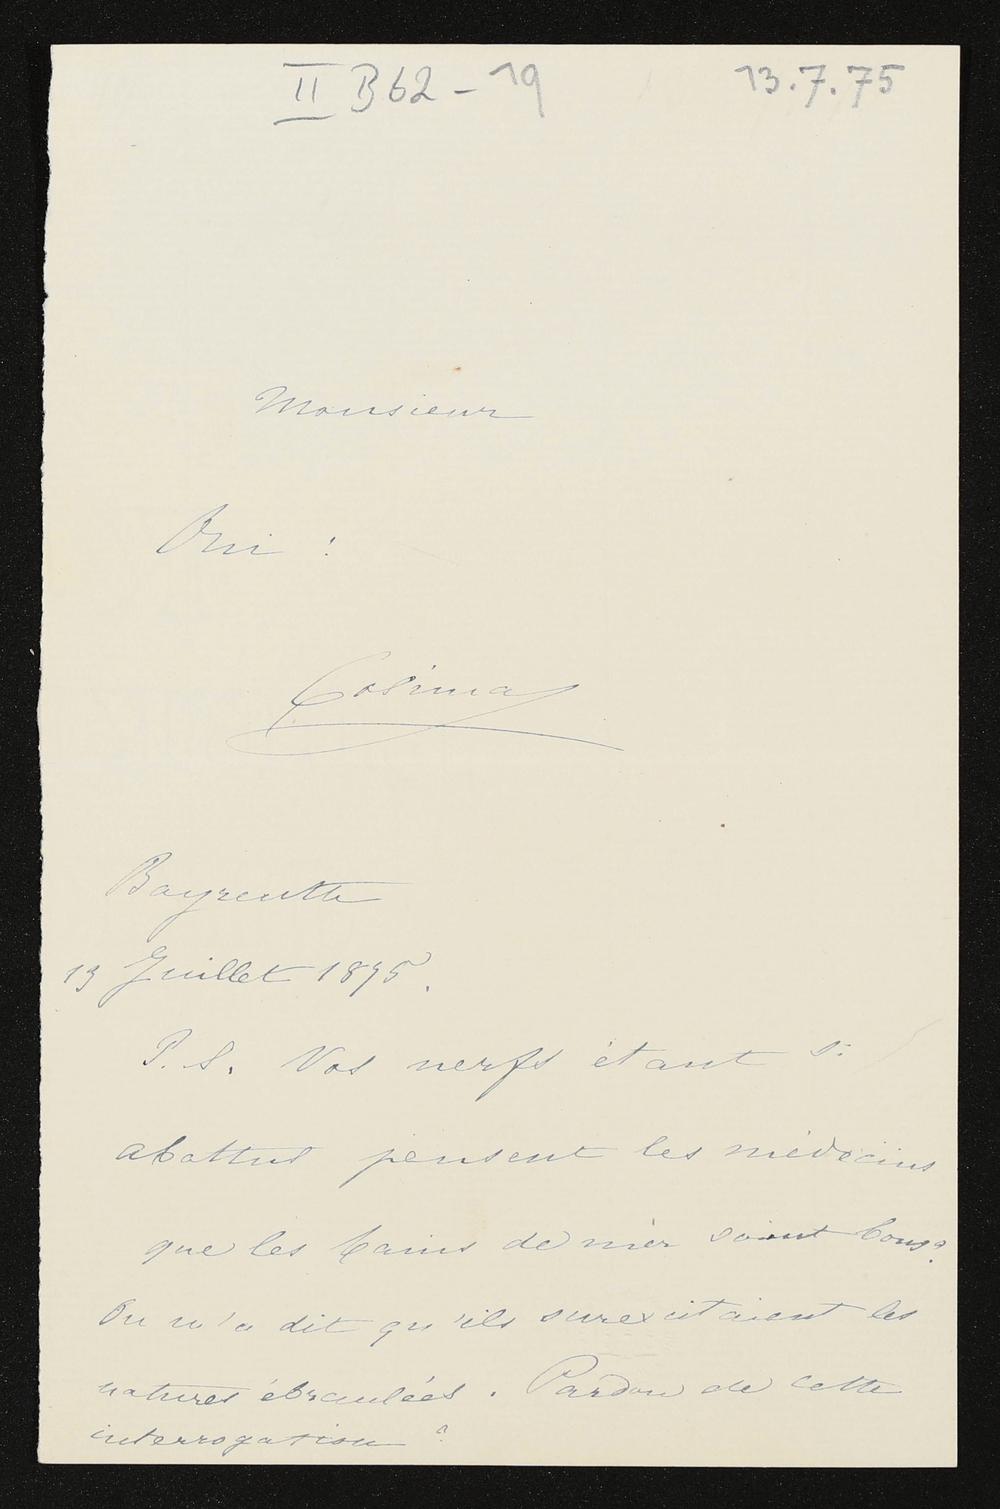 II B 62 - 19
13.7.75
Monsieur
Oui :
Cosima
Bayreuth
13 Juillet 1875.
P. S. Vos nerfs étant si
abattus pensent les médecins
que les bains de mer soient bons?
On m'a dit qu'ils surexcitaient les
natures ébranlées. Pardon de cette
interrogation?